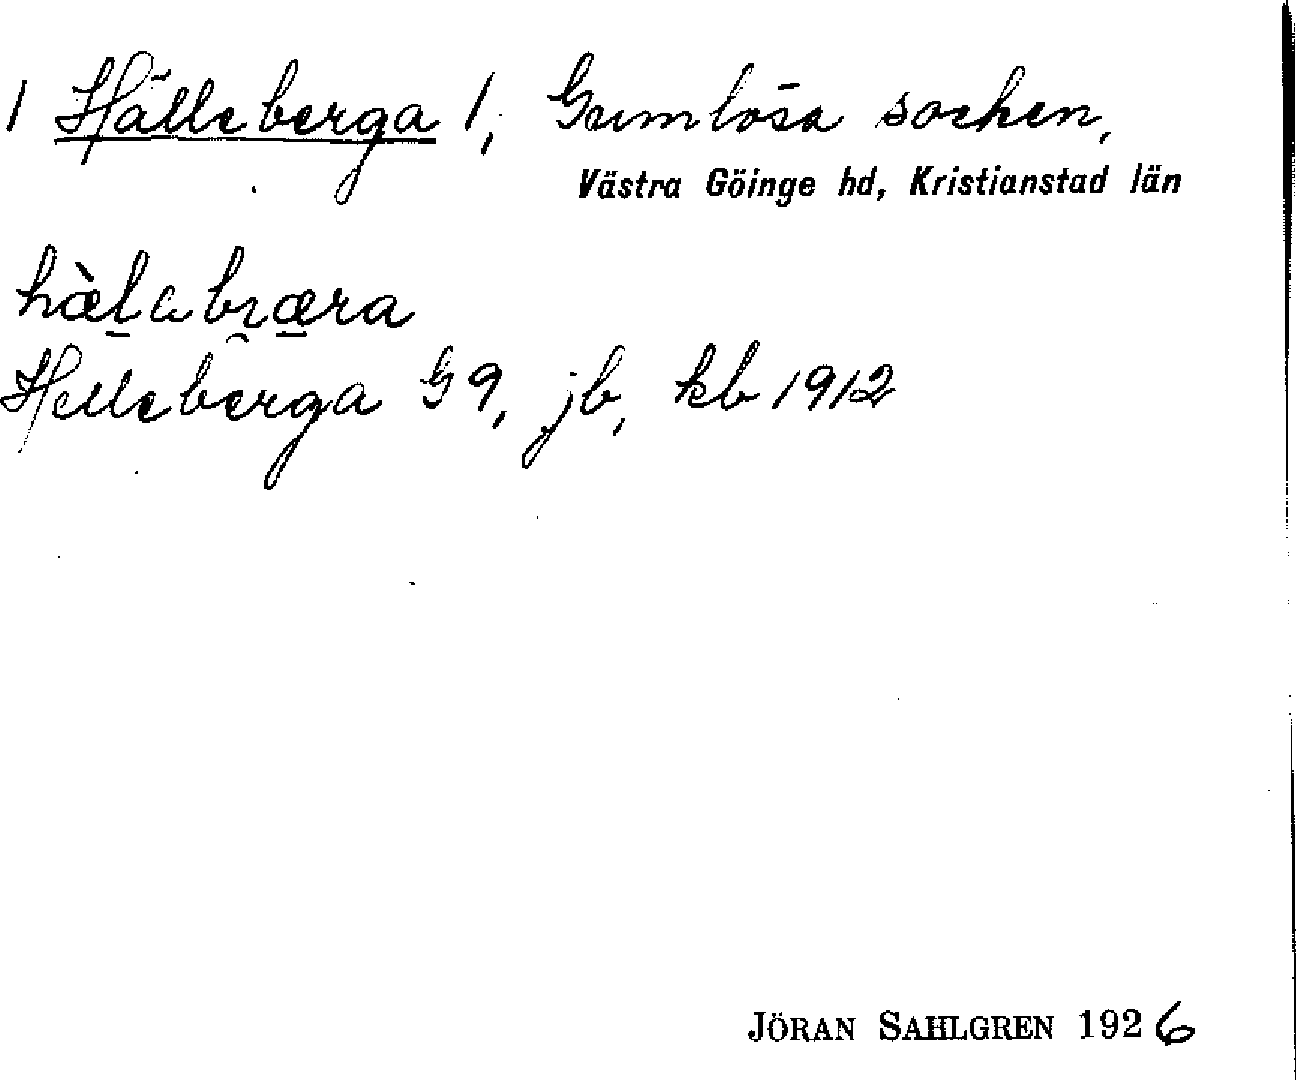 / Hälleberga /, Gumlösa socken,
Västra Göinge hd, Kristianstad län
Helleberga G 9, jb, kb 1912
JÖRAN SAHLGREN 1926